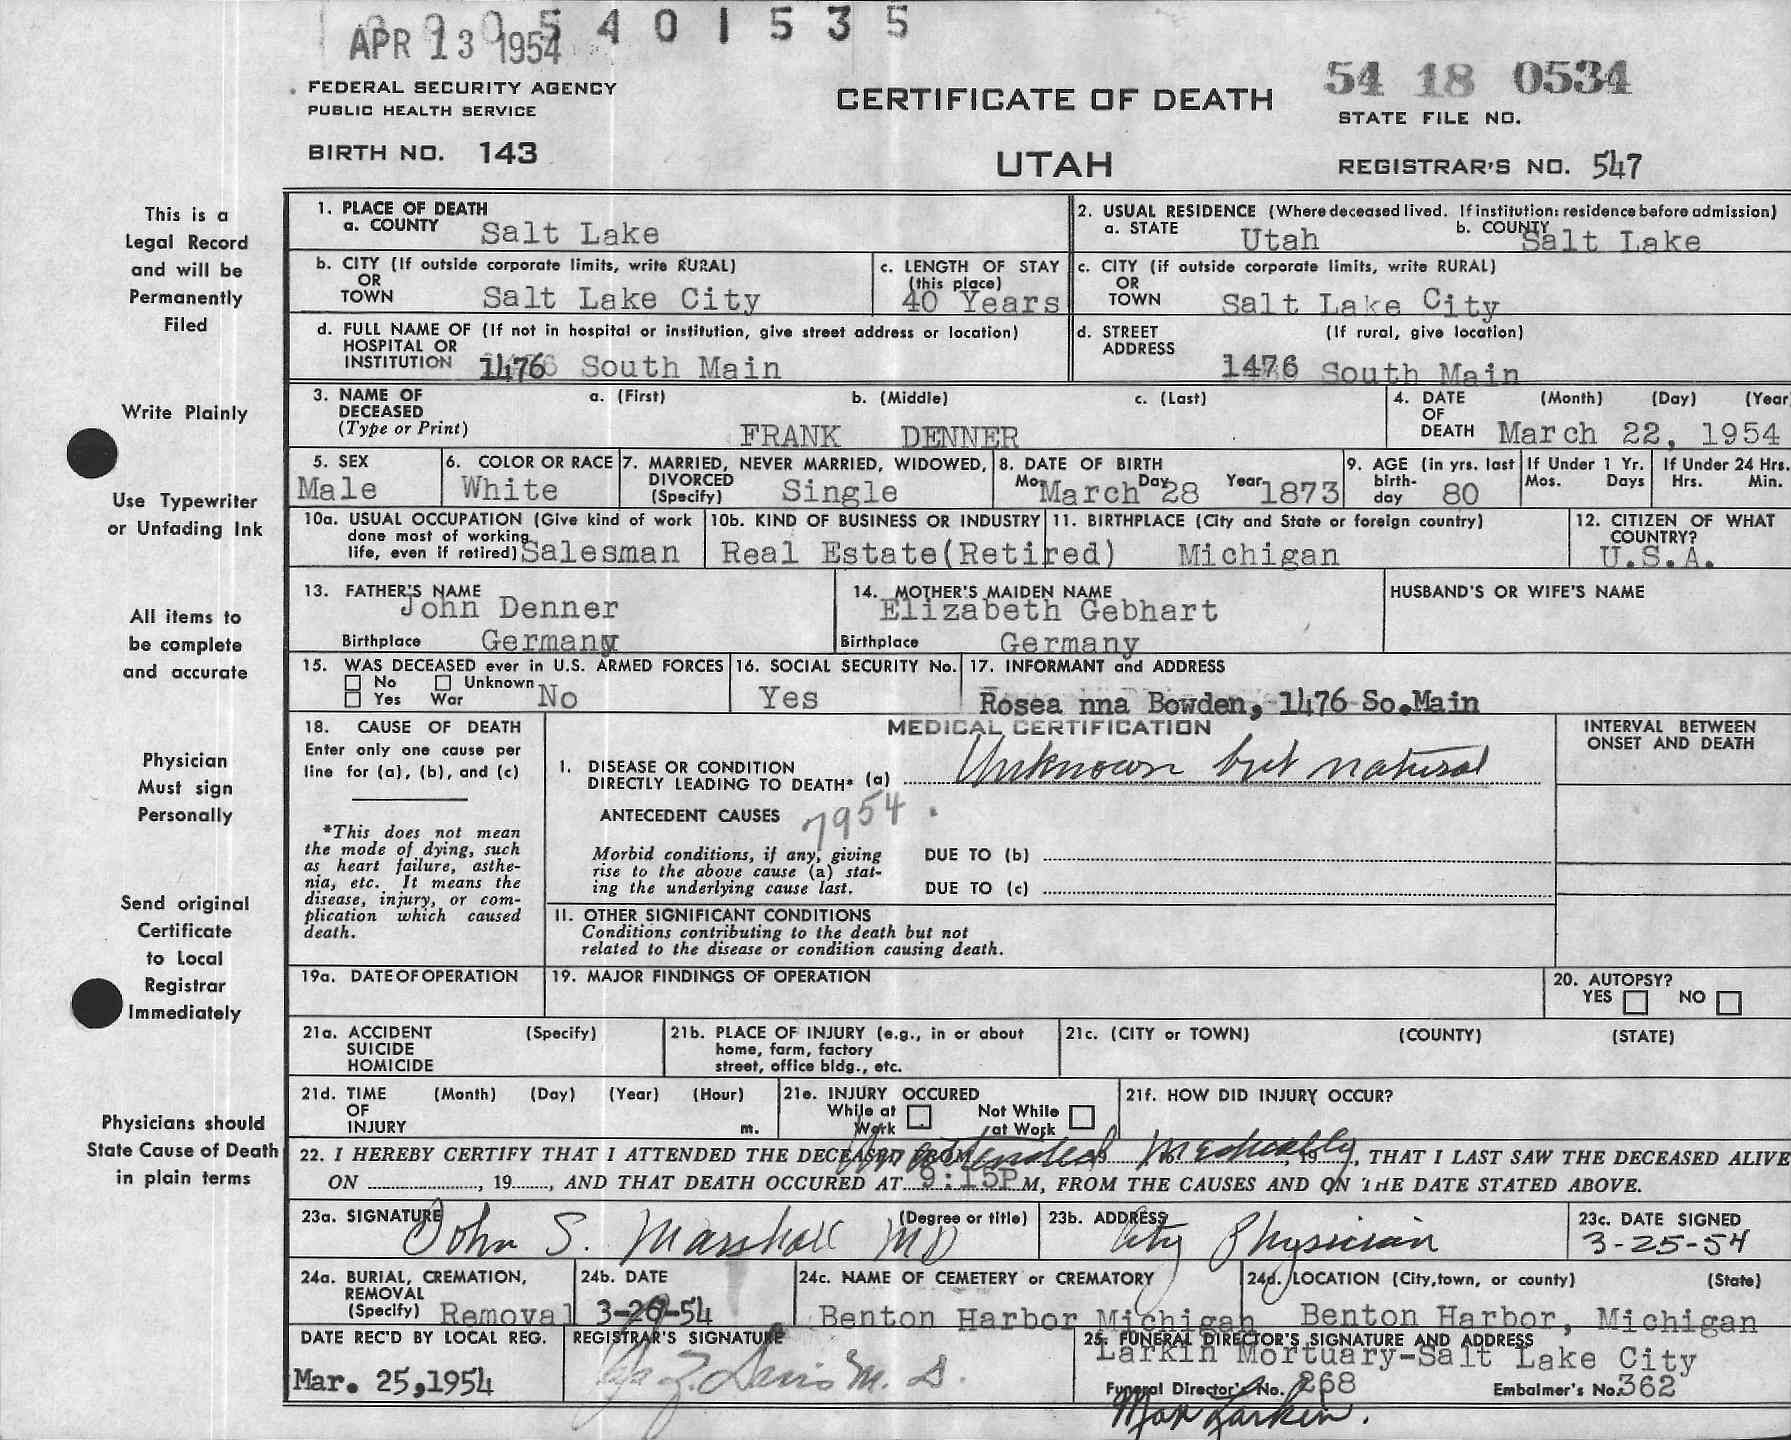 5 4 0 1 5 3 5
APR 13 1954
FEDERAL SECURITY AGENCY
PUBLIC HEALTH SERVICE
BIRTH NO. 143
CERTIFICATE OF DEATH
UTAH
54 18 0534
STATE FILE NO.
REGISTRAR'S NO. 547
This is a
Legal Record
and will be
Permanently
Filed
Write Plainly
Use Typewriter
or Unfading Ink
All items to
be complete
and accurate
Physician
Must sign
Personally
Send original
Certificate
to Local
Registrar
Immediately
Physicians should
State Cause of Death
in plain terms
1. PLACE OF DEATH
a. COUNTY Salt Lake
2. USUAL RESIDENCE (Where deceased lived. If institution: residence before admission)
a. STATE Utah b. COUNTY Salt Lake
b. CITY (If outside corporate limits, write RURAL)
OR
TOWN Salt Lake City
c. LENGTH OF STAY
(this place)
40 Years
c. CITY (if outside corporate limits, write RURAL)
OR
TOWN Salt Lake City
d. FULL NAME OF (If not in hospital or institution, give street address or location)
HOSPITAL OR
INSTITUTION 1476 South Main
d. STREET (If rural, give location)
ADDRESS
1476 South Main
3. NAME OF a. (First) b. (Middle) c. (Last)
DECEASED
(Type or Print) FRANK DENNER
4. DATE (Month) (Day) (Year
OF
DEATH March 22, 1954
5. SEX
Male
6. COLOR OR RACE
White
7. MARRIED, NEVER MARRIED, WIDOWED,
DIVORCED
(Specify) Single
8. DATE OF BIRTH
Mo. March Day 28 Year 1873
9. AGE (in yrs. last
birth-
day 80
If Under 1 Yr.
Mos. Days
If Under 24 Hrs.
Hrs. Min.
10a. USUAL OCCUPATION (Give kind of work
done most of working
life, even if retired) Salesman
10b. KIND OF BUSINESS OR INDUSTRY
Real Estate(Retired)
11. BIRTHPLACE (City and State or foreign country)
Michigan
12. CITIZEN OF WHAT
COUNTRY?
U.S.A.
13. FATHER'S NAME
John Denner
Birthplace Germany
14. MOTHER'S MAIDEN NAME
Elizabeth Gebhart
Birthplace Germany
HUSBAND'S OR WIFE'S NAME
15. WAS DECEASED ever in U.S. ARMED FORCES
No Unknown
Yes War No
16. SOCIAL SECURITY No.
Yes
17. INFORMANT and ADDRESS
Rosea nna Bowden, 1476 So.Main
18. CAUSE OF DEATH
Enter only one cause per
line for (a), (b), and (c)
*This does not mean
the mode of dying, such
as heart failure, asthe-
nia, etc. It means the
disease, injury, or com-
plication which caused
death.
MEDICAL CERTIFICATION
I. DISEASE OR CONDITION
DIRECTLY LEADING TO DEATH* (a) Unknown but natural
ANTECEDENT CAUSES 7954.
Morbid conditions, if any, giving
rise to the above cause (a) stat-
ing the underlying cause last.
DUE TO (b)
DUE TO (c)
II. OTHER SIGNIFICANT CONDITIONS
Conditions contributing to the death but not
related to the disease or condition causing death.
INTERVAL BETWEEN
ONSET AND DEATH
19a. DATE OF OPERATION
19. MAJOR FINDINGS OF OPERATION
20. AUTOPSY?
YES NO
21a. ACCIDENT (Specify)
SUICIDE
HOMICIDE
21b. PLACE OF INJURY (e.g., in or about
home, farm, factory
street, office bldg., etc.
21c. (CITY or TOWN) (COUNTY) (STATE)
21d. TIME (Month) (Day) (Year) (Hour)
OF
INJURY m.
21e. INJURY OCCURED
While at Work
Not While at Work
21f. HOW DID INJURY OCCUR?
Unattended Medically
22. I HEREBY CERTIFY THAT I ATTENDED THE DECEASED FROM , 19 , THAT I LAST SAW THE DECEASED ALIVE
ON , 19 , AND THAT DEATH OCCURED AT 9:15P M, FROM THE CAUSES AND ON THE DATE STATED ABOVE.
23a. SIGNATURE (Degree or title)
John S. Marshall MD
23b. ADDRESS
City Physician
23c. DATE SIGNED
3-25-54
24a. BURIAL, CREMATION,
REMOVAL
(Specify) Removal
24b. DATE
3-26-54
24c. NAME OF CEMETERY or CREMATORY
Benton Harbor Michigan
24d. LOCATION (City, town, or county) (State)
Benton Harbor, Michigan
DATE REC'D BY LOCAL REG.
Mar. 25,1954
REGISTRAR'S SIGNATURE
Davis M. D.
25. FUNERAL DIRECTOR'S SIGNATURE AND ADDRESS
Larkin Mortuary-Salt Lake City
Funeral Director's No. 268 Embalmer's No. 362
Max Larkin.